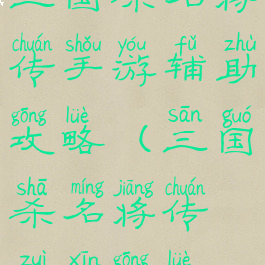 三国杀名将
chuán shǒu yóu fǔ zhù
传手游辅助
gōng lüè sān guó
攻略(三国
shā míng jiāng chuán
杀名将传
zuì xīn gōng lüè